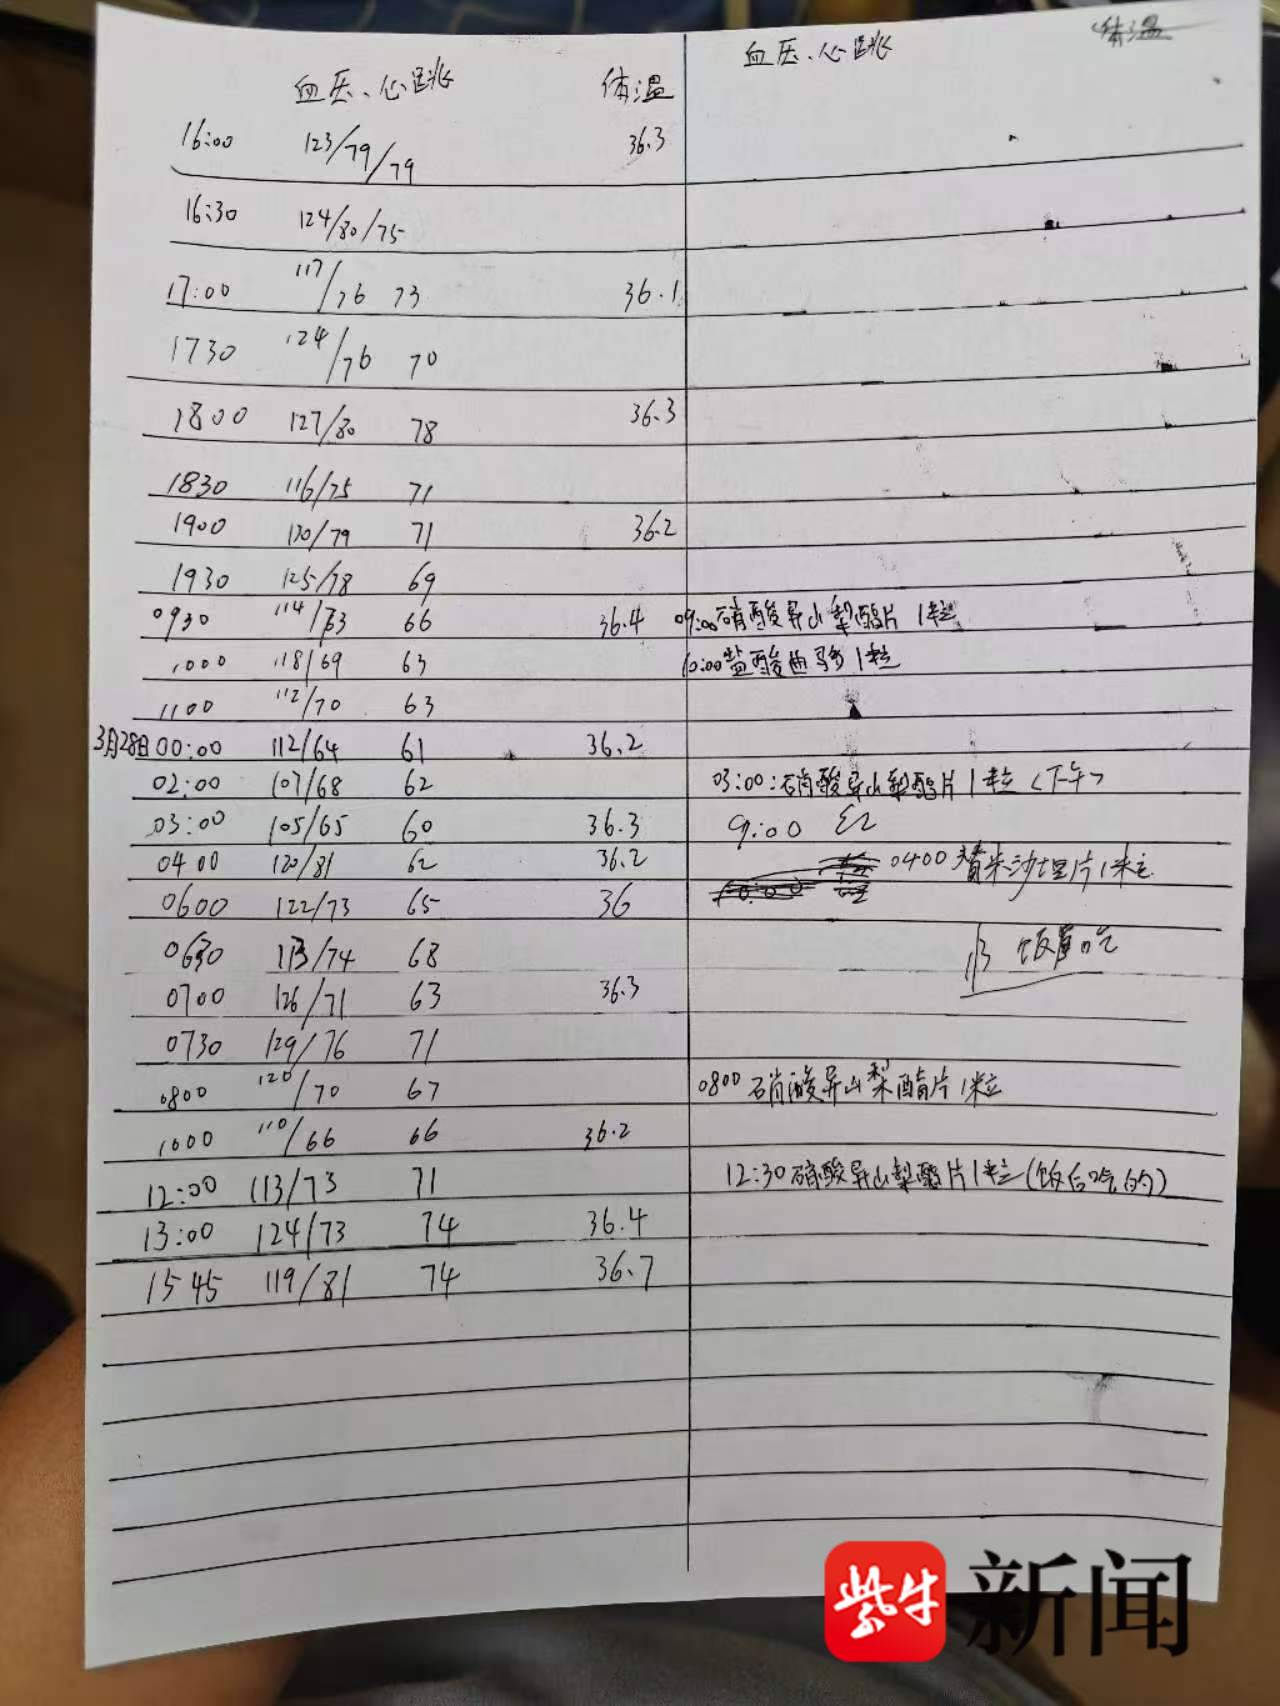 血压、心跳 体温 血压、心跳
16:00 123/79/79 36.3
16:30 124/80/75
17:00 117/76 73 36.1
1730 124/76 70
1800 127/80 78 36.3
1830 116/75 71
1900 120/79 71 36.2
1930 125/78 69
0930 114/73 66 36.4 09:00硝酸异山梨酯片 1粒
1000 118/69 63 10:00盐酸曲 1粒
1100 112/70 63
3月28日 00:00 112/64 61 36.2
02:00 107/68 62 03:00:硝酸异山梨酯片 1粒 (下午)
03:00 105/65 60 36.3 9:00
0400 120/81 62 36.2 0400 替米沙坦片1粒
0600 122/73 65 36
0630 113/74 68 饭前吃
0700 126/71 63 36.3
0730 129/76 71
0800 120/70 67 0800 硝酸异山梨酯片 1粒
1000 110/66 66 36.2
12:00 113/73 71 12:30硝酸异山梨酯片1粒(饭后吃的)
13:00 124/73 74 36.4
1545 119/81 74 36.7
紫牛 新闻